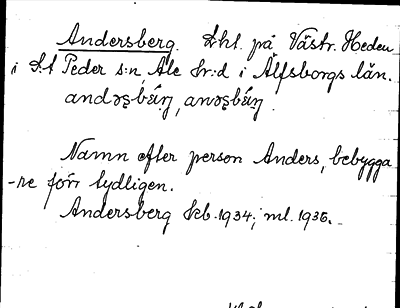 Andersberg. Lht. på Västr. Heden
i S:t Peder s:n, Ale hr:d i Älfsborgs län.
Namn efter person Anders, bebygga
-re förr tydligen.
Andersberg Skb. 1934; ml. 1935.